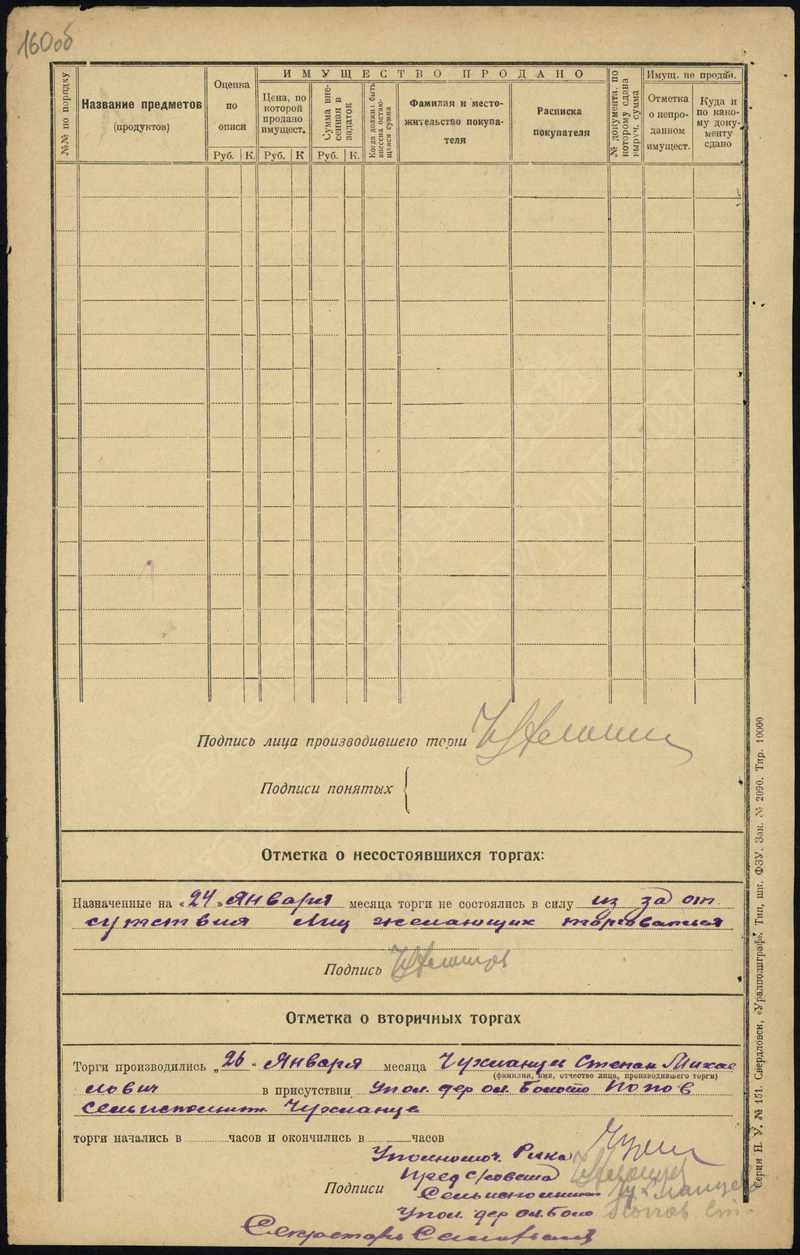 160об
№№ по порядку
Название предметов
(продуктов)
Оценка
по
описи
Руб. К.
ИМУЩЕСТВО ПРОДАНО
Цена, по
которой
продано
имущест.
Руб. К
Сумма вне-
сенная в
задаток
Руб. К.
Когда должна быть
внесена остаю-
щаяся сумма
Фамилия и место-
жительство покупа-
теля
Расписка
покупателя
№ документа, по
которому сдана
выруч. сумма
Имущ. не продан.
Отметка
о непро-
данном
имущест.
Куда и
по како-
му доку-
менту
сдано
Подпись лица производившего торги
Подписи понятых
Отметка о несостоявшихся торгах:
Назначенные на «24» Января месяца торги не состоялись в силу из за от
сутствия лиц желающих торговаться
Подпись
Отметка о вторичных торгах
Торги производились „26" Января месяца Чухланцев Степан Михаe
(фамилия, имя, отчество лица, производившего торги)
лович в присутствии Упол. дер ол. Болото Попов
Сельисполнит. Чухланцев
торги начались в часов и окончились в часов
Уполномоч. Рика
Пред с/совета
Подписи Сельисполнит
Упол. дер ол. Боло Попов Ст.
Секретарь
Серия Н. У. № 151. Свердловск, «Уралполиграф». Тип, шк. ФЗУ. Зак. № 2090. Тир. 10000